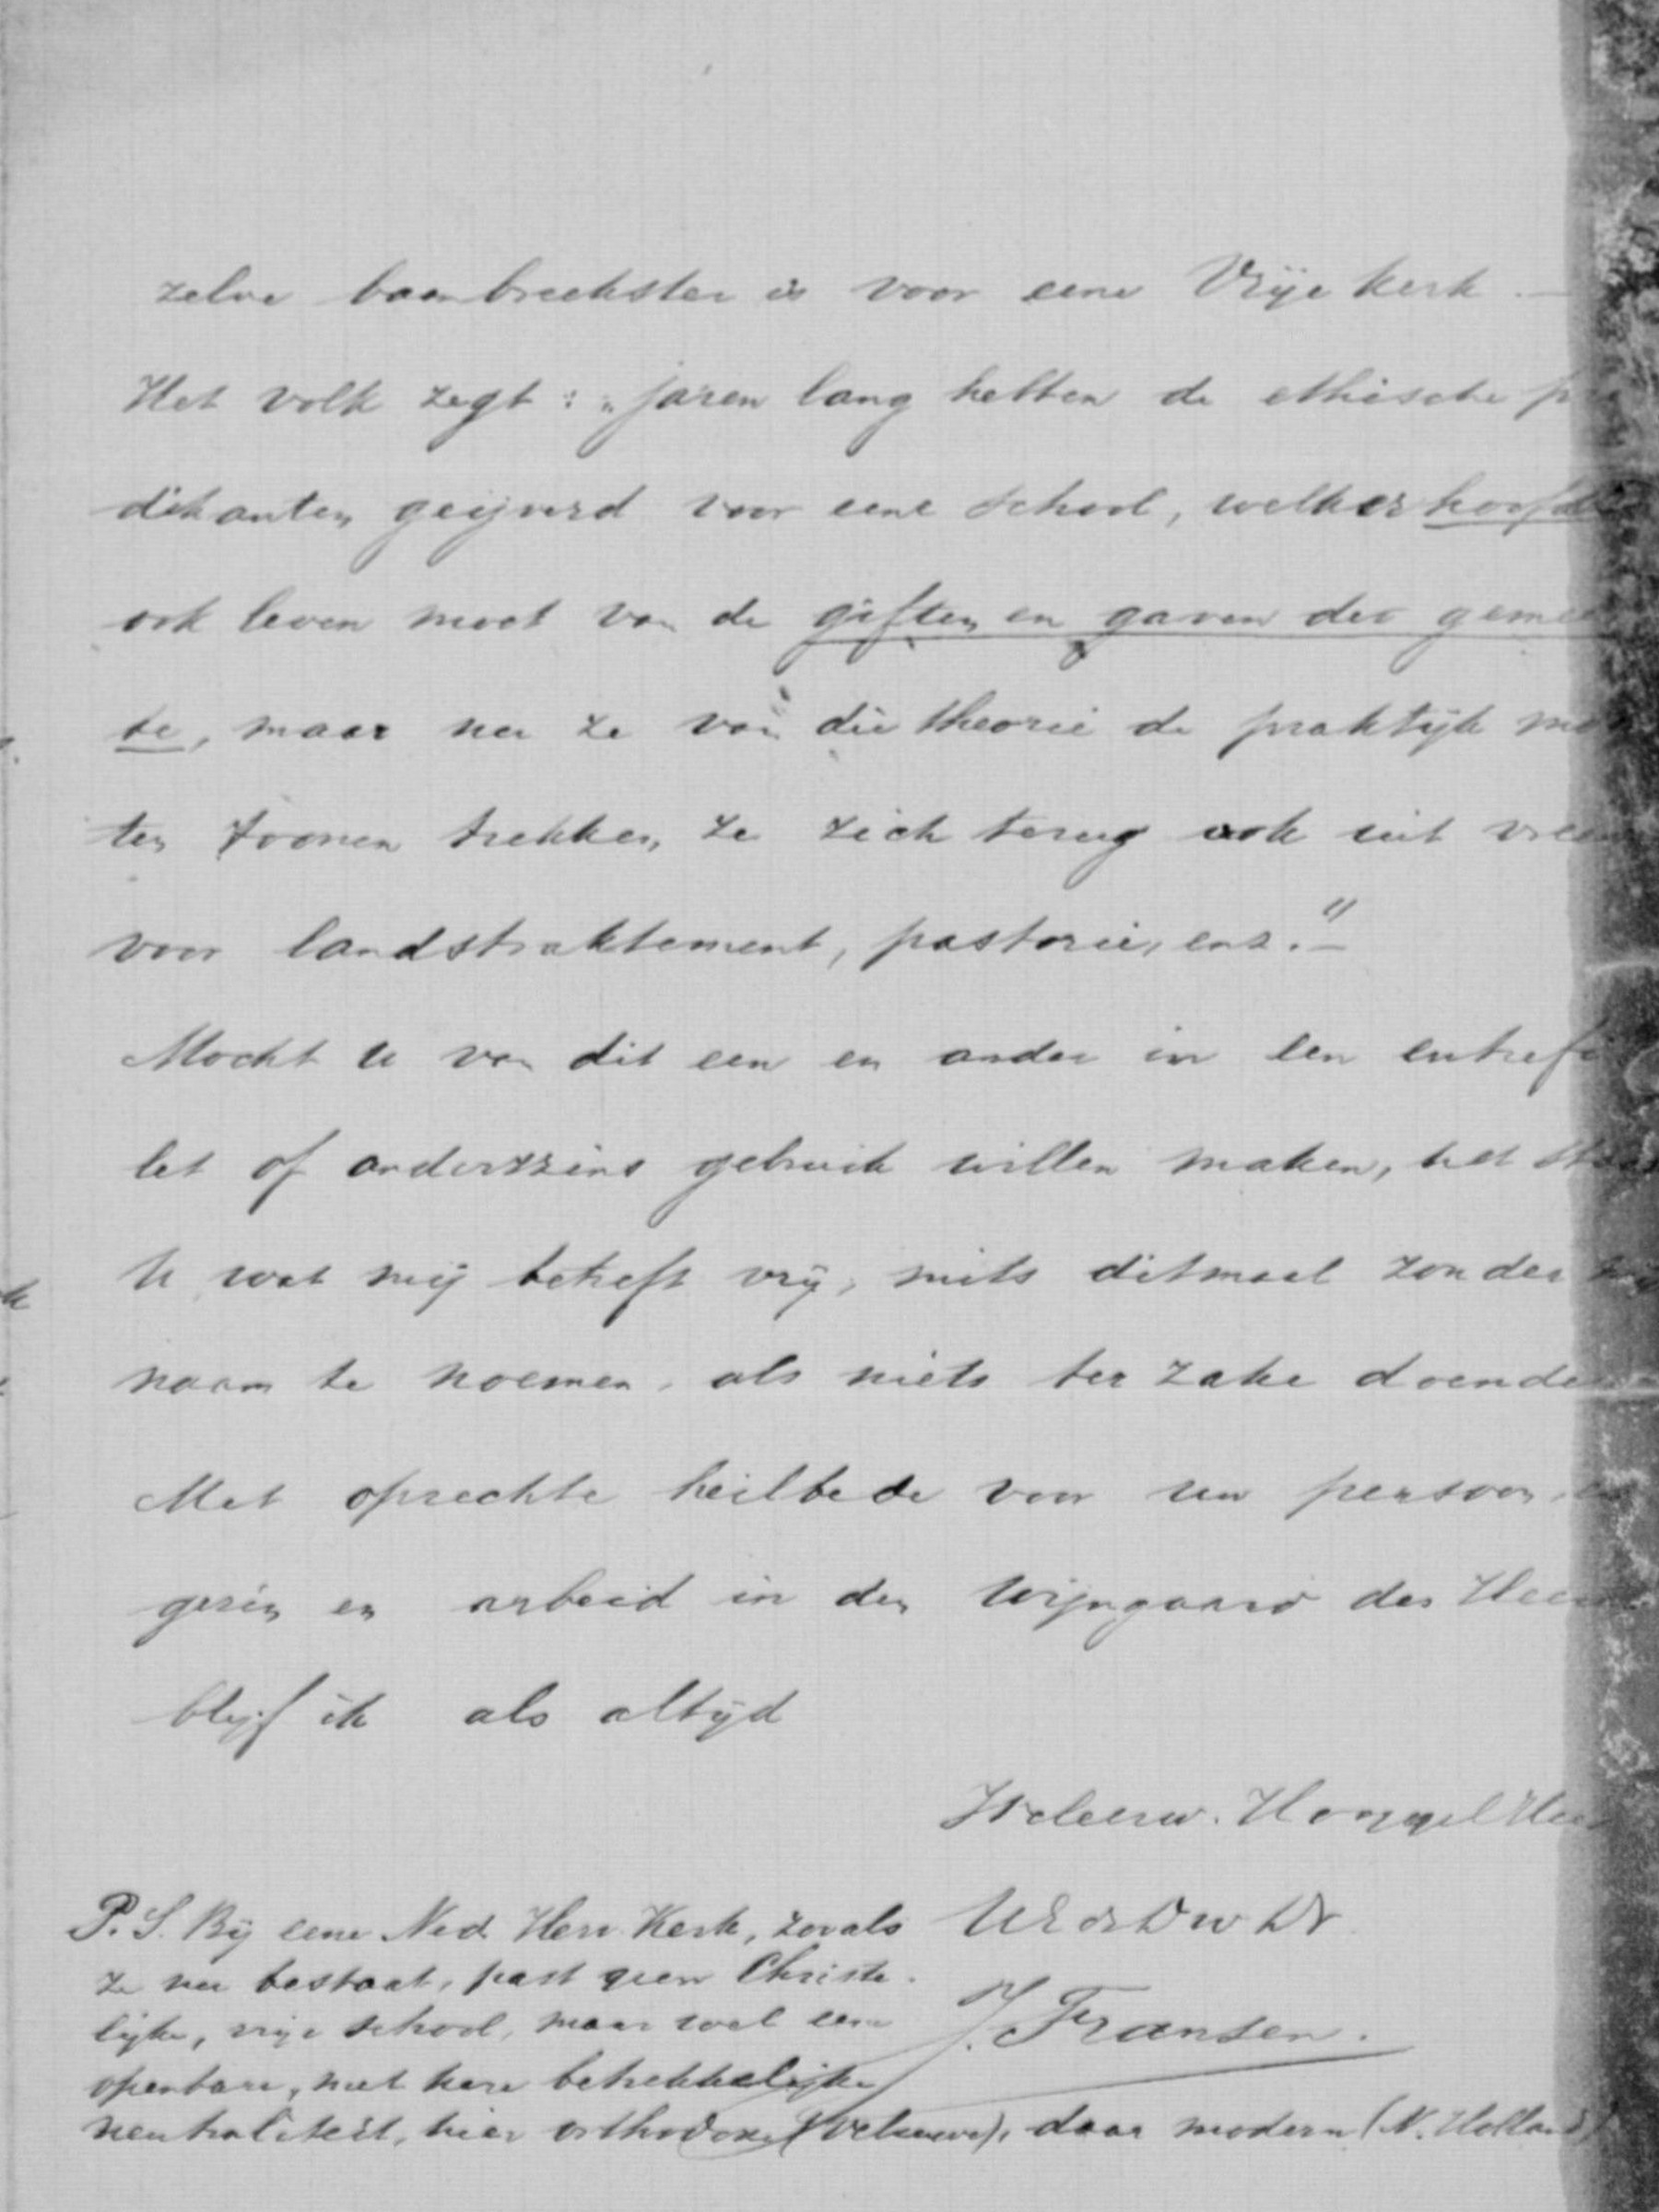 zelve baanbreekster is voor eene Vrije kerk. —
Het volk zegt: „jaren lang hebben de ethische pre
dikanten geijverd voor eene school, welker hoofd
ook leven moet van de giften en gaven der gemeen
te, maar nu ze van die theorie de praktijk moe
ten toonen trekken ze zich terug ook uit vrees
voor landstraktement, pastorie, enz." —
Mocht U van dit een en ander in een entrefi
let of anderszins gebruik willen maken, het staat
U wat mij betreft vrij, mits ditmaal zonder mijn
naam te noemen, als niets ter zake doende
Met oprechte heilbede voor uw persoon,
gezin en arbeid in den wijngaard des Heeren
blijf ik als altijd
Weleerw. Hooggel Heer
UEdsDwDr
J. Fransen.
P.S. Bij eene Ned. Herv. Kerk, zooals
ze nu bestaat, past geen Christe-
lijke, vrije school, maar wel eene
openbare, met hare betrekkelijke
neutraliteit, hier orthodox (Veluwe), daar modern (N. Holland)